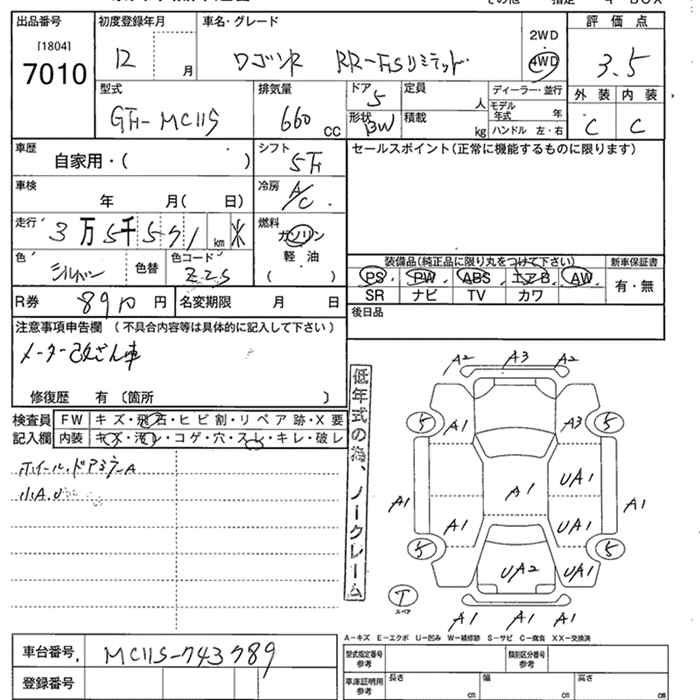 出品番号 初度登録年月 車名・グレード 2WD 評価点
[1804] 7010 12 月 ワゴンR RR-FSリミテッド 4WD 3.5
型式 排気量 ドア 定員 人 ディーラー・並行 外装 内装
GF-MC11S 660 CC 5 形状 BW 積載 kg モデル年式 年 C C
ハンドル 左・右
車歴 シフト セールスポイント(正常に機能するものに限ります)
自家用・( ) 5F
車検 冷房
年 月( 日) A/C
走行 3万5千571 km 燃料
ガソリン
色 シルバー 色替 色コード Z2S 軽油
( )
装備品(純正品に限り丸をつけて下さい) 新車保証書
PS PW ABS エアB AW 有・無
SR ナビ TV カワ
R券 8910 円 名変期限 月 日 後日品
注意事項申告欄 (不具合内容等は具体的に記入して下さい)
メーター改ざん車
修復歴 有 〔箇所 〕
検査員 FW キズ・飛石・ヒビ割・リペア跡・X要
記入欄 内装 キズ・汚レ・コゲ・穴・スレ・キレ・破レ
低年式の為、ノークレーム
A2 A3 A2
5 A1 A3 5
UA1
A1 A1 A1
A1 UA1
5 UA2 UA1 5
T A1 A1 A1
スペア
A-キズ E-エクボ U-凹み W-補修跡 S-サビ C-腐食 XX-交換済
車台番号 MC11S-743789
登録番号
型式指定番号 参考 類別区分番号 参考
車庫証明用 参考 長さ cm 幅 cm 高さ cm